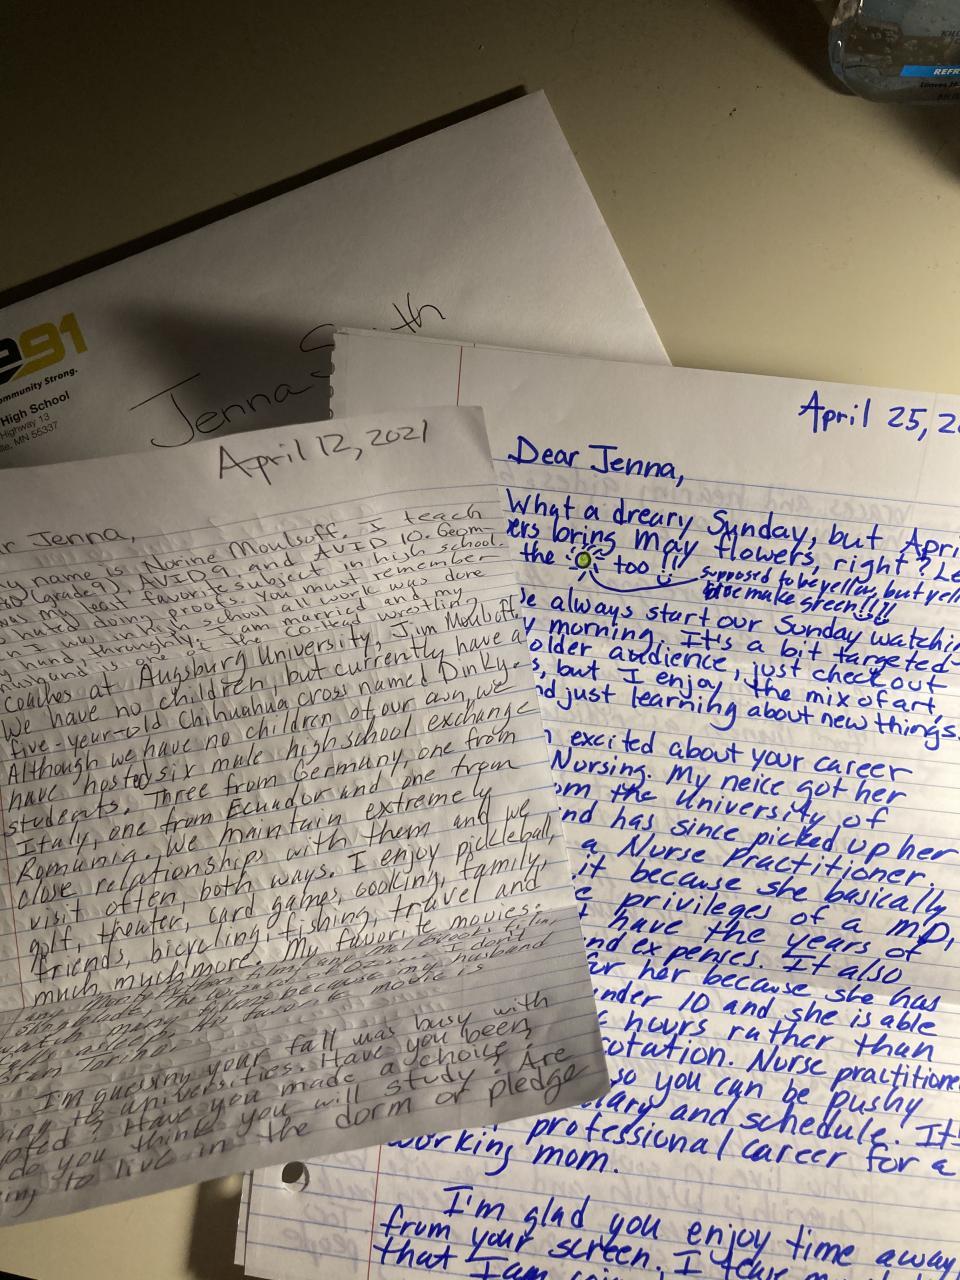 REFR
91
ommunity Strong.
High School
Highway 13
le, MN 55337
Jenna
April 12, 2021
Jenna,
name is Norine Moulsoff. I teach
(grade 9), AVID 9, and AVID 10. Geom-
was my least favorite subject in high school.
hated doing proofs. You must remember
I was in high school all work was done
hand, throughly. I am married and my
husband, is one of the co-lead wrestling
coaches at Augsburg University, Jim Moulsoff.
We have no children, but currently have a
five-year-old Chihuahua cross named Dinky.
Although we have no children of our own, we
have hosted six male high school exchange
students. Three from Germany, one from
Italy, one from Ecuador and one from
Romania. We maintain extremely
close relationships with them and we
visit often, both ways. I enjoy pickleball,
golf, theater, card games, cooking, family,
friends, bicycling, fishing, travel and
much much more. My favorite movies:
any Monty Python films and Mel Brooks films,
The Wizard of I don't
watch many films because my husband
asleep. His favorite movie is
Gran Torino.
I'm guessing your fall was busy with
to universities. Have you been
Have you made a choice?
do you think you will study? Are
to live in the dorm or pledge
April 25,
Dear Jenna,
What a dreary Sunday, but Apri
ers bring may flowers, right? Le
the too!!
supposed to be yellow, but yell
blue make green!!!!
always start our Sunday watchin
morning. It's a bit targeted
older audience, just check out
but I enjoy the mix of art,
nd just learning about new things.
excited about your career
Nursing. My neice got her
om the University of
nd has since picked up her
a Nurse Practitioner.
it because she basically
privileges of a MD,
have the years of
nd expenses. It also
for her because she has
nder 10 and she is able
hours rather than
rotation. Nurse practitione
so you can be pushy
lary and schedule. It's
professional career for a
working mom.
I'm glad you enjoy time away
from your screen. I
that I am